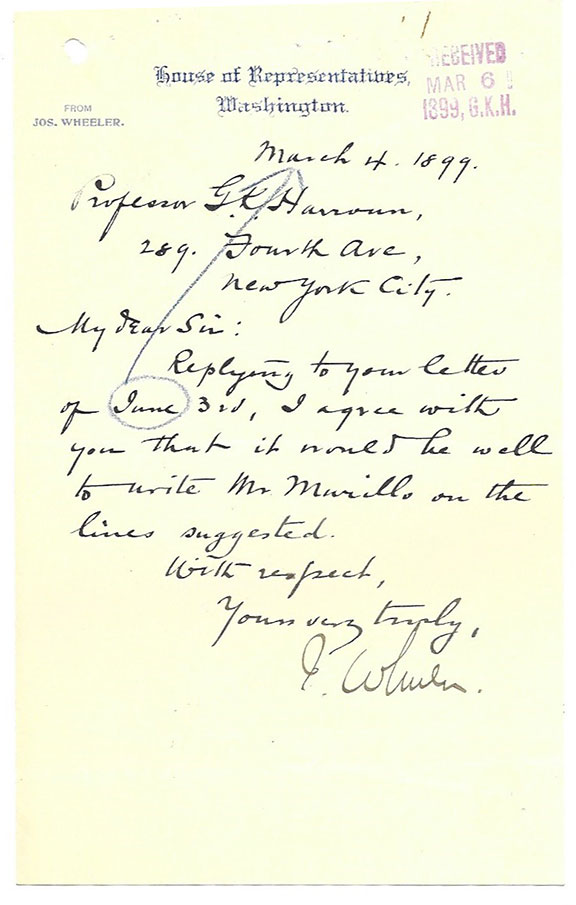 House of Representatives,
Washington.
FROM
JOS. WHEELER.
RECEIVED
MAR 6
1899, G.K.H.
March 4. 1899.
Professor G.K. Harroun,
289. Fourth Ave,
New York City.
My dear Sir:
Replying to your letter
of June 3rd, I agree with
you that it would be well
to write Mr Murillo on the
lines suggested.
With respect,
Yours very truly,
J. Wheeler.